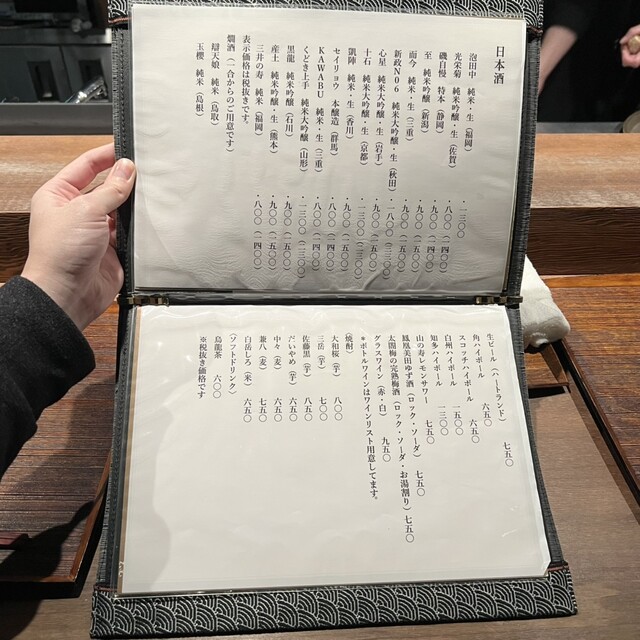 日本酒
泡田中 純米・生（福岡）・一三〇〇
光栄菊 純米吟醸・生（佐賀）・八〇〇（一四〇〇）
磯自慢 特本（静岡）・九〇〇（一四〇〇）
至 純米吟醸・生（新潟）・九〇〇（一五〇〇）
而今 純米吟醸・生（三重）・九〇〇（一五〇〇）
新政No6 純米大吟醸・生（秋田）・一八〇〇
心星 純米大吟醸・生（岩手）・九〇〇（一五〇〇）
十石 純米大吟醸・生（京都）・一三〇〇（二三〇〇）
凱陣 純米・生（香川）・九〇〇（一五〇〇）
セイリョウ 本醸造（群馬）・八〇〇（一四〇〇）
KAWABU 純米・生（三重）・八〇〇（一四〇〇）
くどき上手 純米大吟醸（山形）・一三〇〇（二三〇〇）
黒龍 純米吟醸（石川）・九〇〇（一五〇〇）
産土 純米吟醸・生（熊本）・九〇〇（一五〇〇）
三井の寿 純米（福岡）・八〇〇（一四〇〇）
表示価格は税抜きです。
燗酒（一合からのご用意です）
辯天娘 純米（鳥取）
玉櫻 純米（島根）
生ビール（ハートランド） 七五〇
角ハイボール 六五〇
スコッチハイボール 六五〇
白州ハイボール 一五〇〇
知多ハイボール 一三〇〇
山の寿レモンサワー 七五〇
鳳凰美田ゆず酒（ロック・ソーダ） 七五〇
太閤梅の完熟梅酒（ロック・ソーダ・お湯割り）七五〇
グラスワイン（赤・白） 九五〇
＊ボトルワインはワインリスト用意してます。
（焼酎）
大和桜（芋） 八〇〇
三岳（芋） 七〇〇
佐藤黒（芋） 八五〇
だいやめ（芋） 六五〇
中々（麦） 六五〇
兼八（麦） 七五〇
白岳しろ（米） 六五〇
（ソフトドリンク）
烏龍茶 六〇〇
※税抜き価格です